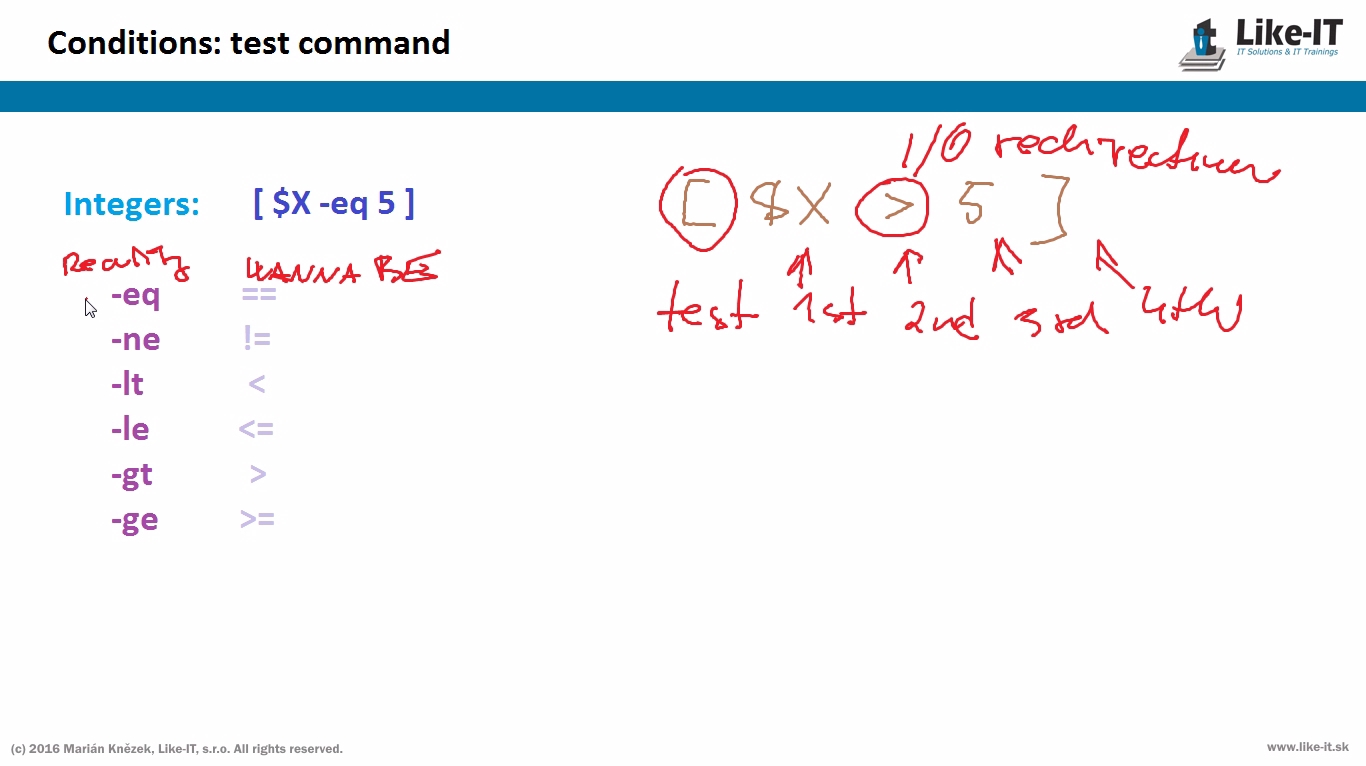 Conditions: test command
Like-IT
IT Solutions & IT Trainings
Integers: [ $X -eq 5 ]
Reality WANNA BE
-eq ==
-ne !=
-lt <
-le <=
-gt >
-ge >=
I/O redirection
[ $X > 5 ]
test 1st 2nd 3rd 4th
(c) 2016 Marián Knězek, Like-IT, s.r.o. All rights reserved.
www.like-it.sk